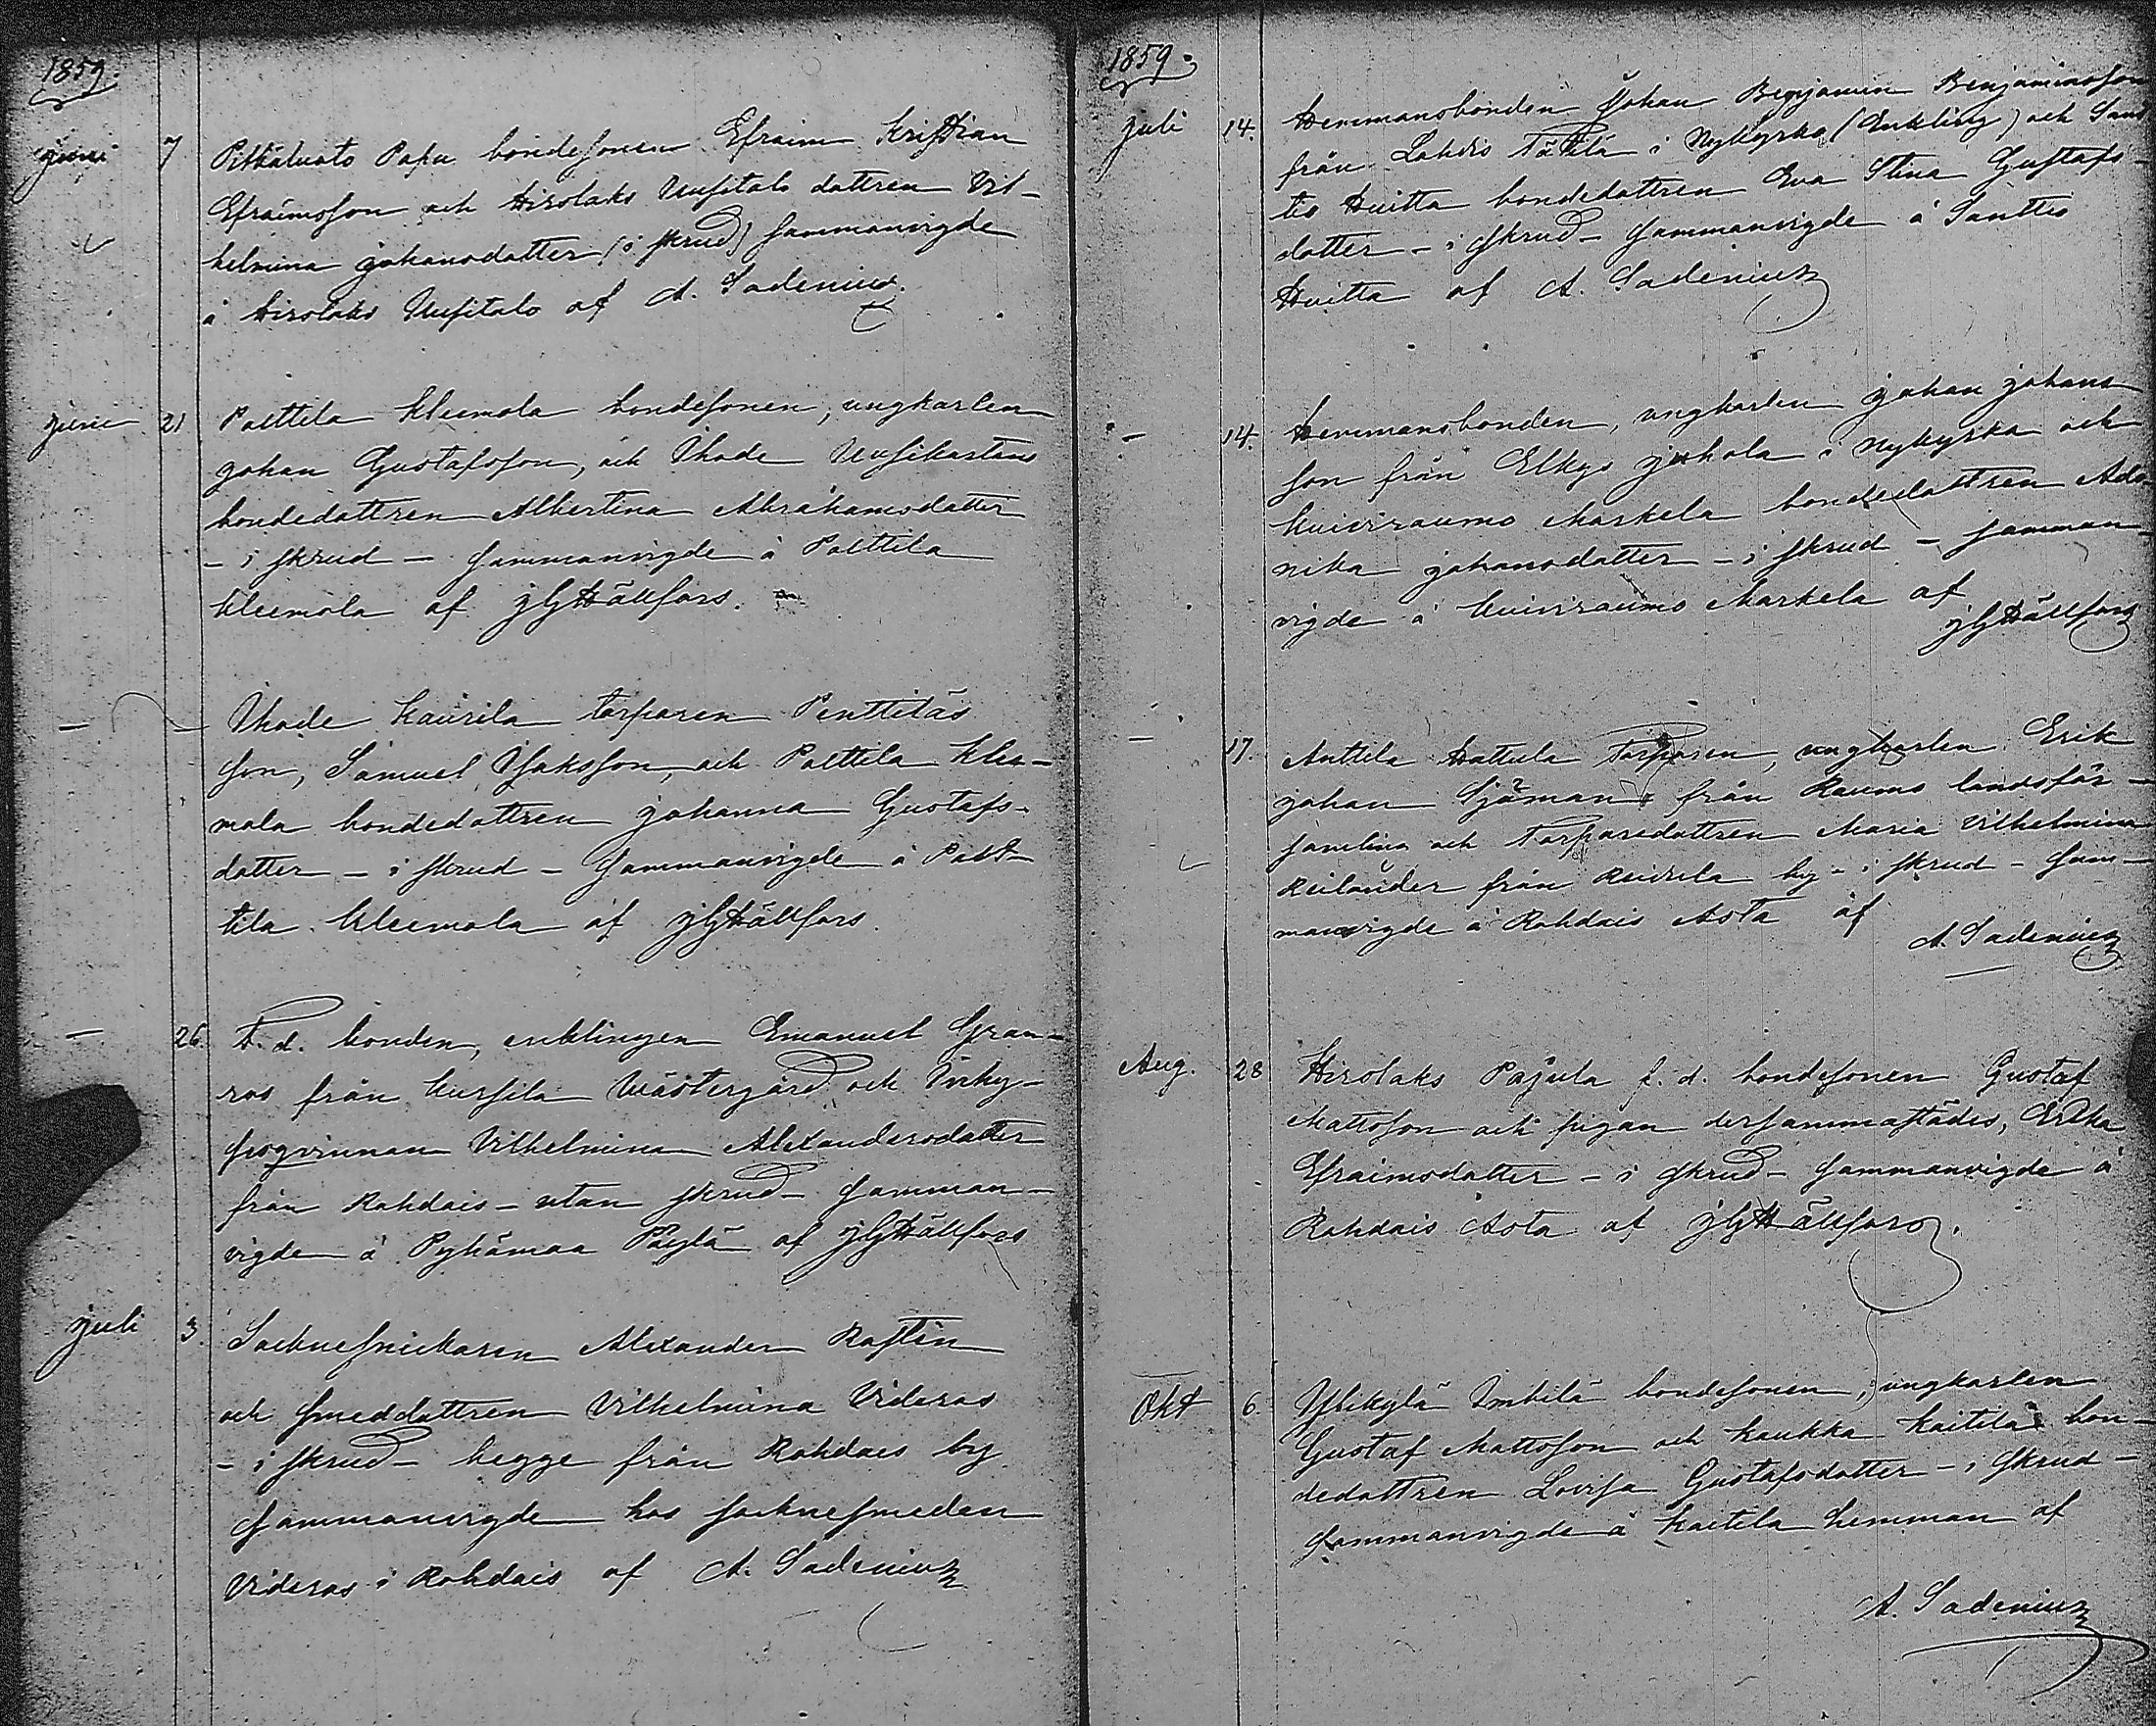 1859.
juni 7 Pitkäluoto Papu bondesonen Efraim Kristian
Efraimsson och Hirslaks Uusitalo dottren Vil-
helmina Johansdotter (i skrud) sammanvigde
å Hirslaks Uusitalo af A. Sadenius.
juni 21 Palttila Kleemola bondesonen, ungkarlen
Johan Gustafsson, och Ihode Uusikartano
bondedottren Albertina Abrahamsdotter
- i skrud - sammanvigde å Palttila
Kleemola af J G Hällfors.
- - Ihode Kaurila torparen Penttiläs
son, Samuel Isaksson, och Palttila Klee-
mola bondedottren Johanna Gustafs-
dotter - i skrud - sammanvigde å Palt-
tila Kleemola af J G Hällfors.
- 26. F. d. bonden, enklingen Emanuel Gran-
ros från Kursila Wästergård och Inhy-
sesqvinnan Vilhelmina Alexandersdotter
från Rohdais - utan skrud - samman-
vigde å Pyhämaa Päylä af J G Hällfors
juli 3. Socknesnickaren Alexander Rostén
och smeddottren Vilhelmina Videros
- i skrud - begge från Rohdais by
sammanvigde hos socknesmeden
Videros i Rohdais af A. Sadenius
1859.
juli 14. Hemmansbonden Johan Benjamin Benjaminsson
från Lahdis Tätilä i Nykyrko (Enkling) och Sant
tio Huitta bondedottren Eva Stina Gustafs-
dotter - i skrud - sammanvigde å Santtio
Huitta af A. Sadenius
- 14. Hemmansbonden, ungkarlen Johan Johans
son från Elkys Juhola i Nykyrka och
Kuiviraumo Markela bondedottren Ado
nika Johansdotter - i skrud - samman-
vigde å Kuiviraumo Markela af
J G Hällfors
- 17. Anttila Hattula Torparen, ungkarlen Erik
Johan Sjöman från Raumo landsför-
samling och Torparedottren Maria Vilhelmina
Reilander från Reivila by - i skrud - sam-
manvigde å Rohdais Asta af
A. Sadenius
Aug. 28 Hirslaks Pajula f. d. bondesonen Gustaf
Mattsson och pigan dersammastädes, Erika
Efraimsdotter - i skrud - sammanvigde å
Rohdais Asta af J G Hällfors.
Okt 6. Ylikylä Imbilä bondesonen, ungkarlen
Gustaf Mattsson och Kaukka Kaitila bon-
dedottren Lovisa Gustafsdotter - i skrud -
sammanvigde å Kaitila hemman af
A. Sadenius